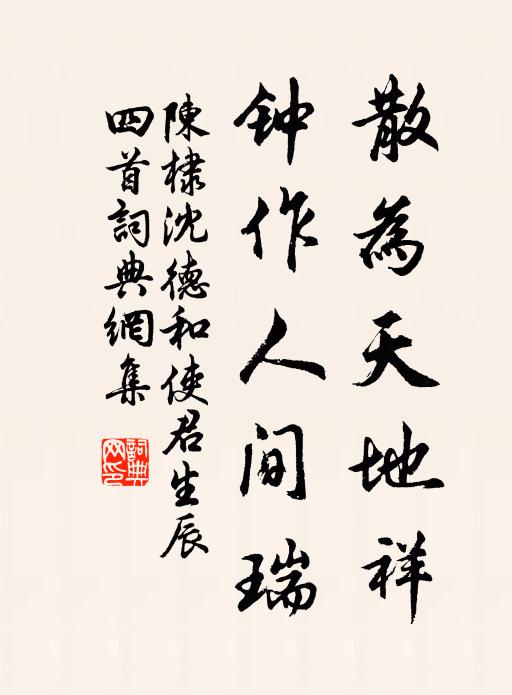 散為天地祥
钟作人间瑞
陳棣沈德和使君生辰
四首詞典網集
詞典
网印